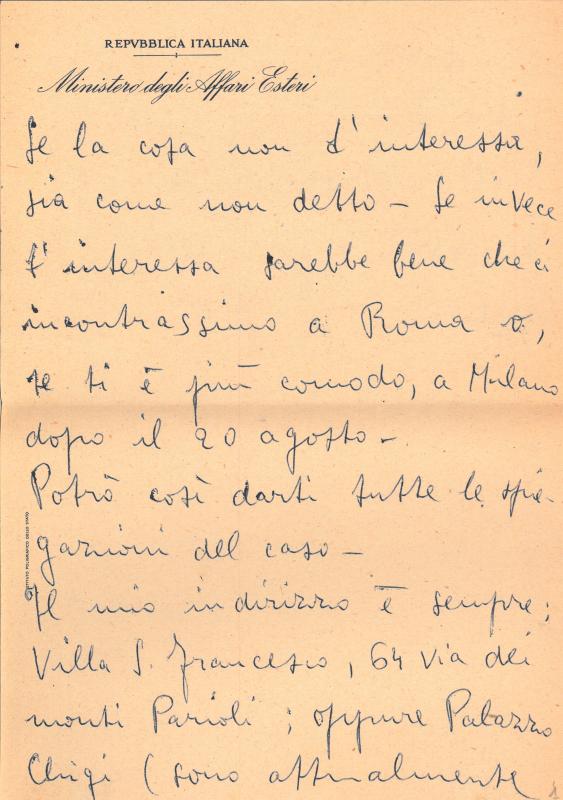 REPVBBLICA ITALIANA
Ministero degli Affari Esteri
Se la cosa non t'interessa,
sia come non detto – Se invece
t'interessa sarebbe bene che ci
incontrassimo a Roma o,
se ti è più comodo, a Milano
dopo il 20 agosto –
Potrò così darti tutte le spie-
gazioni del caso –
Il mio indirizzo è sempre:
Villa S. Francesco, 64 via dei
monti Parioli; oppure Palazzo
Chigi (sono attualmente
ISTITVTO POLIGRAFICO DELLO STATO
1